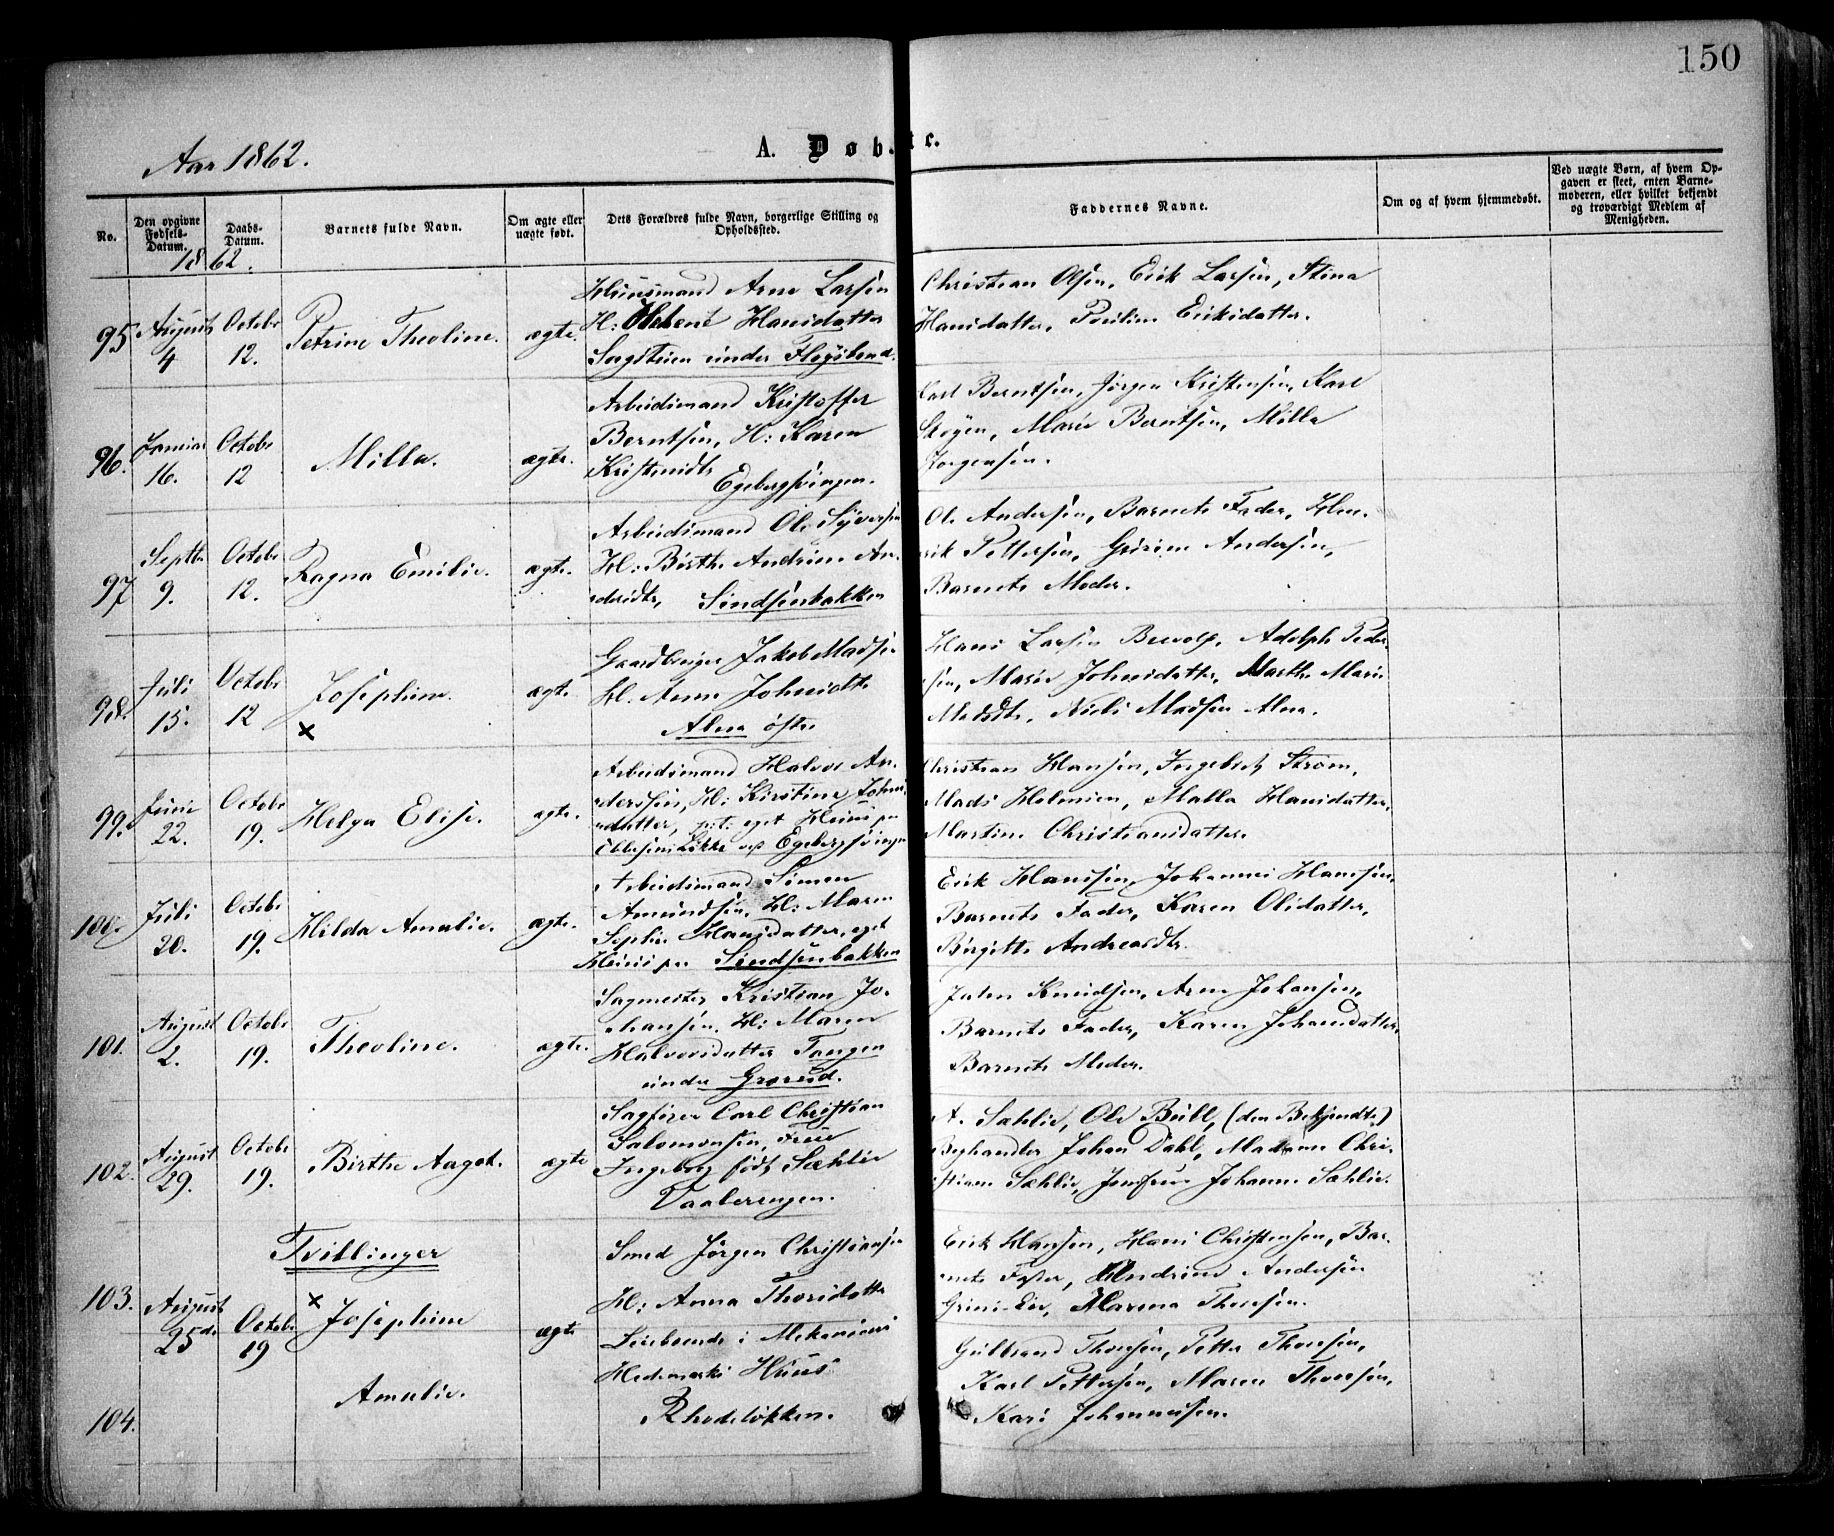 150
Aar 1862.
A. Døbte.
No.
Den opgivne Fødsels-Datum.
Daabs-Datum.
Barnets fulde Navn.
Om ægte eller uægte født.
Dets Forældres fulde Navn, borgerlige Stilling og Opholdssted.
Faddernes Navne.
Om og af hvem hjemmedøbt.
Ved uægte Børn, af hvem Op-
gaven er skeet, enten Barne-
moderen, eller hvilket bekjendt
og troværdigt Medlem af
Menigheden.
1862.
95 August 4 Octobr 12. Petrine Theoline. ægte.
Huusmand Arne Larsen
H: Helene Hansdatter
under
Christian Olsen, Erik Larsen, Stina
Hansdatter, Pauline Eriksdatter.
96. Januar 16. Octobr 12 Milla. ægte.
Arbeidsmand Kristoffer
Berntsen, H: Karen
Kristensdtr Egebergsvingen.
Carl Berntsen, Jørgen Kristensen, Karl
Skøyen, Marie Berntsen, Milla
Jørgensen.
97 Septbr 9. Octobr 12. Ragna Emilie. ægte.
Arbeidsmand Ole Syversen
H: Birthe Andrine An-
dersdtr, Sindsenbakken
Ole Andersen, Barnets Fader, Hen-
rik Pettersen, Andersen,
Barnets Moder.
98. Juli 15. Octobr 12 Josephine. × ægte
Gaardbruger Jakob Madsen
H. Anne Johnsdtr
Alna østre
Hans Larsen Adolph Peder-
sen, Marie Johnsdatter, Marthe Marie
Madsdtr, Niels Madsen Alna.
99. Juni 22. Octobr 19. Helga Elise. ægte.
Arbeidsmand Halvor An-
derssen, H: Kirstine Johns-
datter, eget Huus paa
Ebbesens Løkke ved Egebergsvingen
Christian Hansen, Ingebret Strøm,
Mads Malla Hansdatter,
Martine Christiansdatter.
100. Juli 20. Octobr 19. Hilda Amalie. ægte.
Arbeidsmand Simen
Amundsen, H: Maren
Sophie Hansdatter, eget
Huus paa Sindsenbakken
Erik Hanssen, Johannes Hanssen,
Barnets Fader, Karen Olsdatter,
Birgitte Andreasdtr.
101. August 2. Octobr 19. Theoline. ægte.
Sagmester Kristian Jo-
hansen. H: Maren
Halvorsdatter Tangen
under Grorud.
Knudsen, Arne Johansen,
Barnets Fader, Karen Johansdatter,
Barnets Moder.
102. August 29. Octobr 19. Birthe Aagot. ægte
Sagfører Carl Christian
Salomonsen, Frue
Ingeborg født Sæhlie
Vaalerengen.
A. Sæhlie, Ole Bull, (den Bekjendte)
Byhandler Johan Dahl, Madame Chri-
stiane Sæhlie, Jomfrue Johanne Sæhlie.
Tvillinger
103. August 25de Octobr 19 × Josephine ægte
104. Amalie.
Smed Jørgen Christiansen
H: Anna Thorsdatter
Leieboende i Mekanicus
Hedemarks Huus
Rhodeløkken.
Erik Hansen, Hans Christensen, Bar-
nets Fader, Andrine Andersen
Grini-Eie, Marena Thoresen.
Gulbrand Thoresen, Petter Thoresen,
Karl Pettersen, Maren Thoresen,
Kari Johannesen.